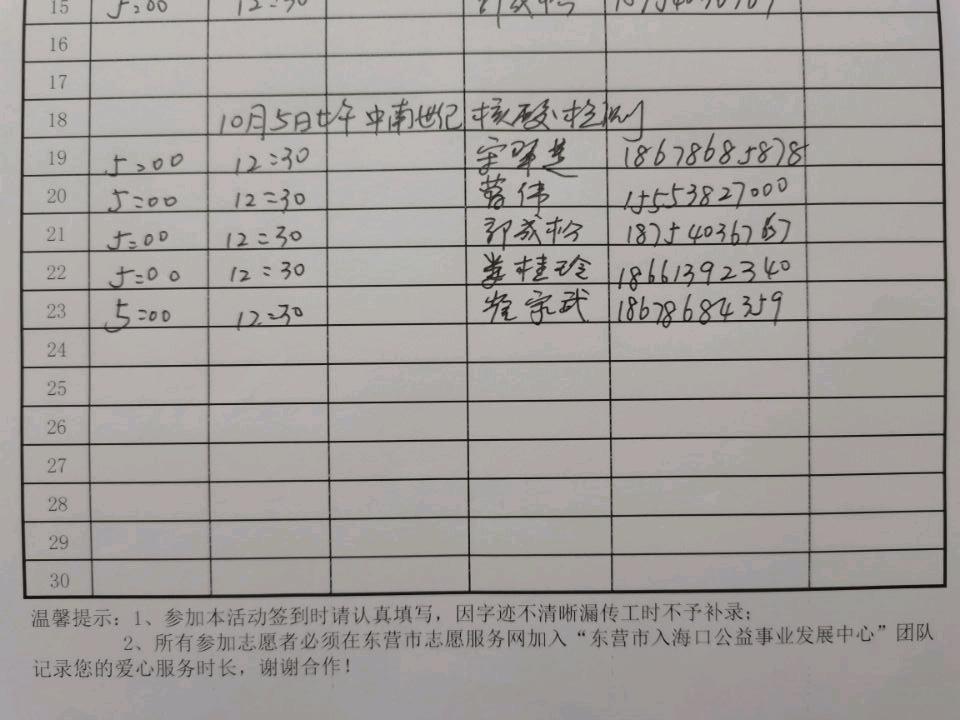 15 5:00 12:30
16
17
18 10月5日中午中南世纪核酸检测
19 5:00 12:30 18678685878
20 5:00 12:30 伟 15553827000
21 5:00 12:30 郭成松 18754036767
22 5:00 12:30 娄桂玲 18661392340
23 5:00 12:30 宗武 18678684359
24
25
26
27
28
29
30
温馨提示：1、参加本活动签到时请认真填写，因字迹不清晰漏传工时不予补录；
2、所有参加志愿者必须在东营市志愿服务网加入“东营市入海口公益事业发展中心”团队
记录您的爱心服务时长，谢谢合作！